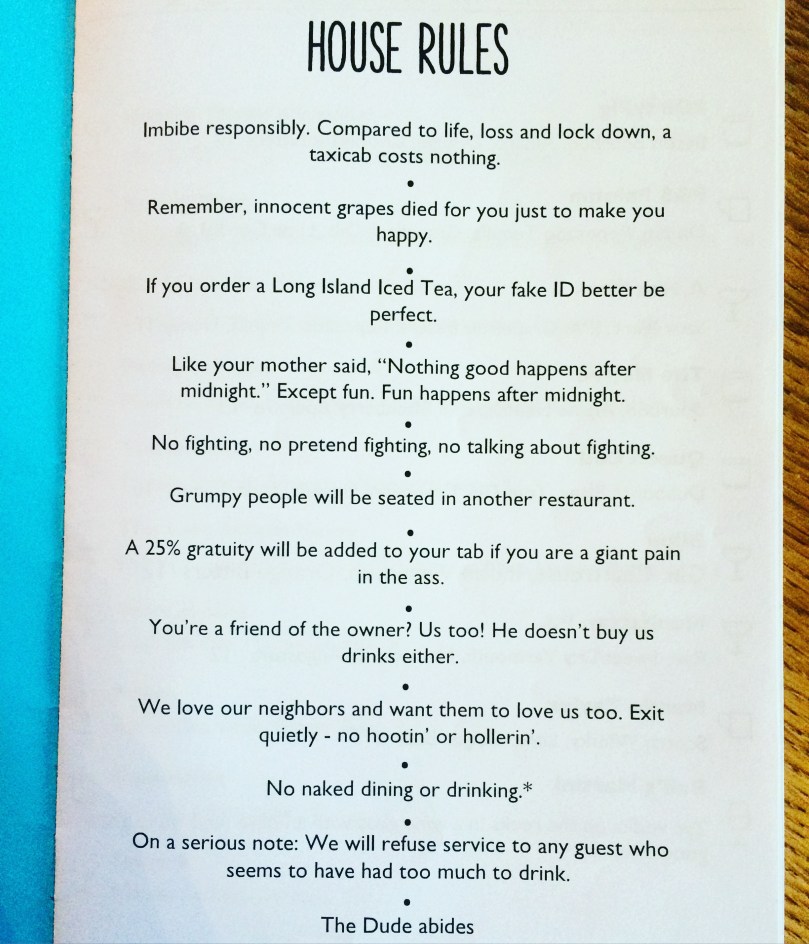 HOUSE RULES
Imbibe responsibly. Compared to life, loss and lock down, a
taxicab costs nothing.
•
Remember, innocent grapes died for you just to make you
happy.
•
If you order a Long Island Iced Tea, your fake ID better be
perfect.
•
Like your mother said, “Nothing good happens after
midnight.” Except fun. Fun happens after midnight.
•
No fighting, no pretend fighting, no talking about fighting.
•
Grumpy people will be seated in another restaurant.
•
A 25% gratuity will be added to your tab if you are a giant pain
in the ass.
•
You’re a friend of the owner? Us too! He doesn’t buy us
drinks either.
•
We love our neighbors and want them to love us too. Exit
quietly - no hootin’ or hollerin’.
•
No naked dining or drinking.*
•
On a serious note: We will refuse service to any guest who
seems to have had too much to drink.
•
The Dude abides